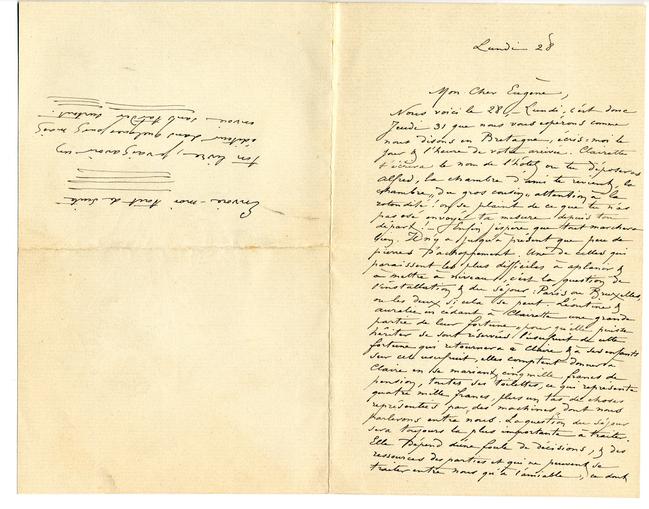 Lundi 28
Mon Cher Eugène,
Nous voici le 28, Lundi, c'est donc
Jeudi 31 que nous vous espérons comme
nous disons en Bretagne, écris-moi le
jour & l'heure de votre arrivée. Clairette
t'écrira le nom de l'hôtel ou tu déposeras
Alfred, la chambre d'ami te revient, la
chambre, du gros cousin, attention à la
rotondité! on se plaint de ce que tu n'as
pas osé envoyer ta mesure depuis ton
départ! Enfin j'espère que tout marchera
bien. Il n'y a jusqu'à présent que peu de
pierres d'achoppement. Une de celles qui
paraissent les plus difficiles à aplanir &
à mettre à niveau, c'est la question de
l'installation & du séjour: Paris ou Bruxelles,
ou les deux si cela se peut. Léontine &
Aurélie en cédant à Clairette une grande
partie de leur fortune, pour qu'elle puisse
hériter se sont réservées l'usufruit de cette
fortune qui retournera à Claire & à ses enfants
sur cet usufruit, elles comptent donner à
Claire en se mariant, cinq mille francs de
pension, toutes ses toilettes, ce qui représente
quatre mille francs, plus un tas de choses
représentées par des machines, dont nous
parlerons entre nous. La question du séjour
sera toujours la plus importante à traiter.
Elle dépend d'une foule de décisions, & des
ressources des parties et qui ne peuvent se
traiter entre nous qu'à l'amiable, ce dont
Envoie-moi tout de suite
ton livre, j'vais avoir un
éditeur dans quelques jours mais
envoie sans tarder surtout!